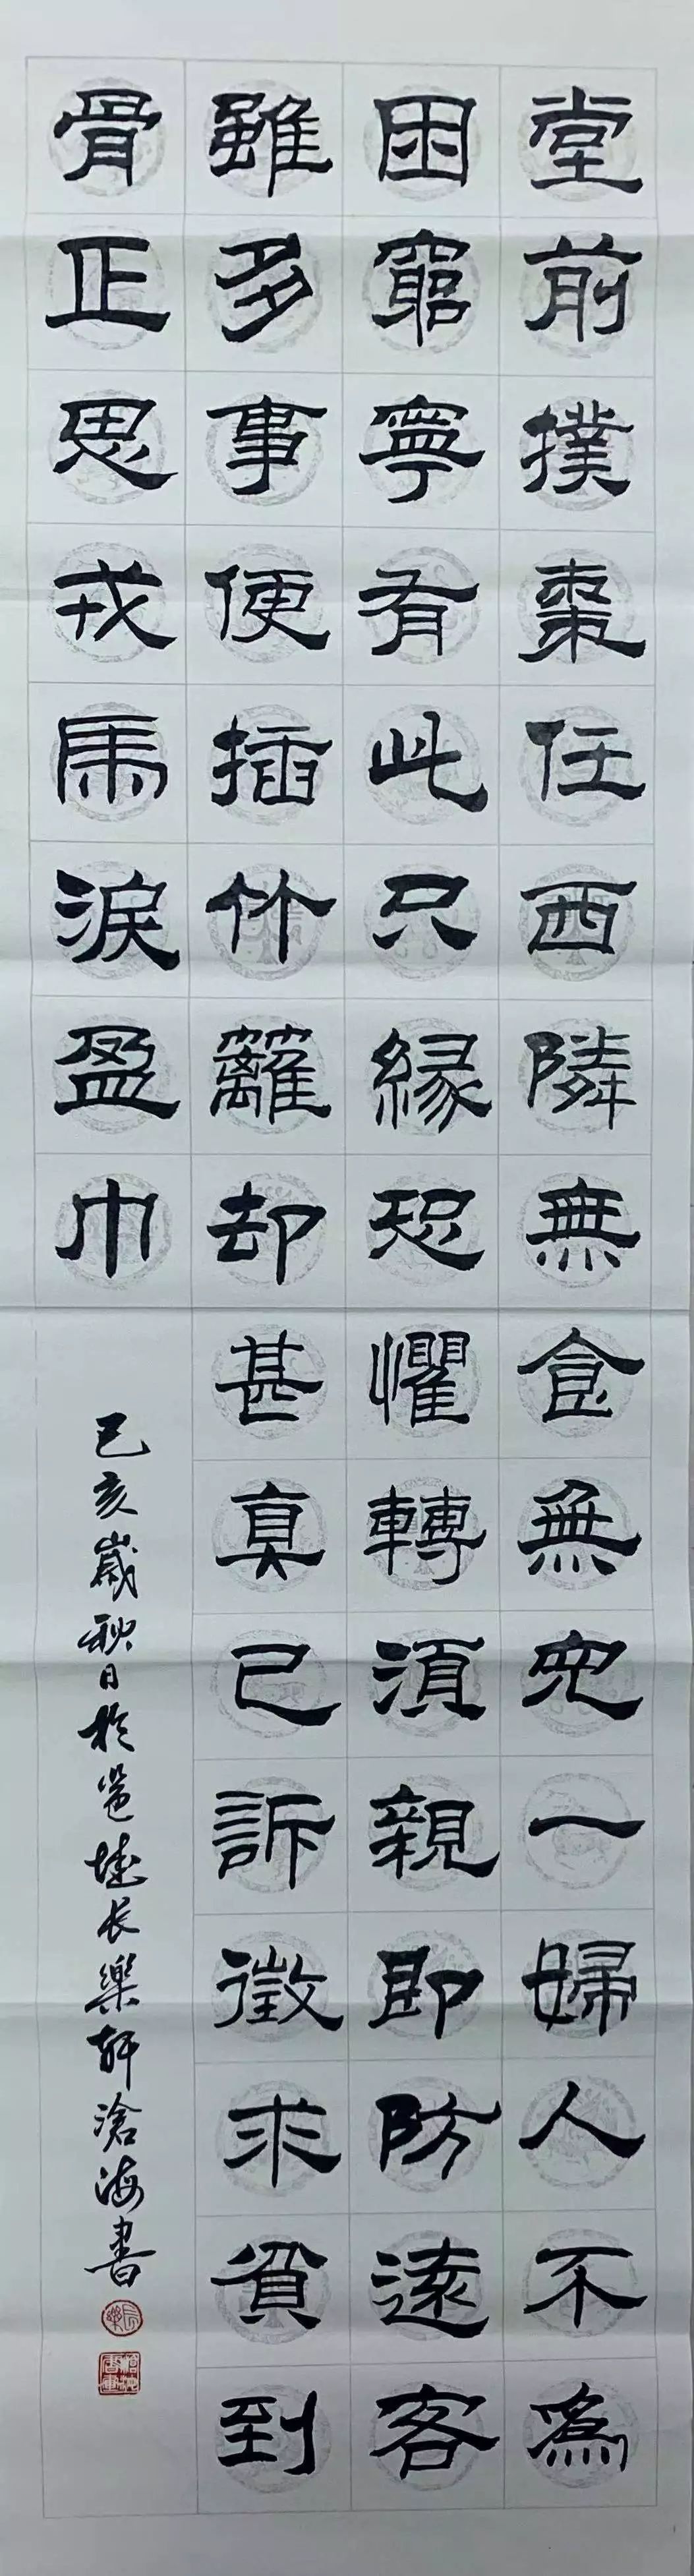 堂前撲棗任西隣無食無兒一婦人不爲
困窮寧有此只緣恐懼轉須親即防遠客
雖多事便插竹籬却甚真已訴徵求貧到
骨正思戎馬淚盈巾
己亥歲秋日於邕城长樂軒滄海書